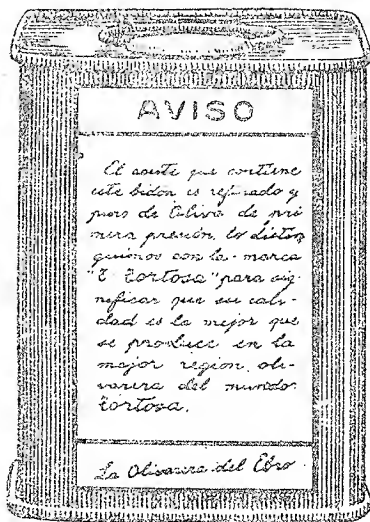 AVISO
El aceite que contiene
este bidon es refinado y
puro de Oliva de pri
mera presión, lo distin
guimos con la marca
"E Tortosa" para sig
nificar que su cali-
dad es la mejor que
se produce en la
mejor region oli-
varera del mundo:
Tortosa.
La Olivarera del Ebro